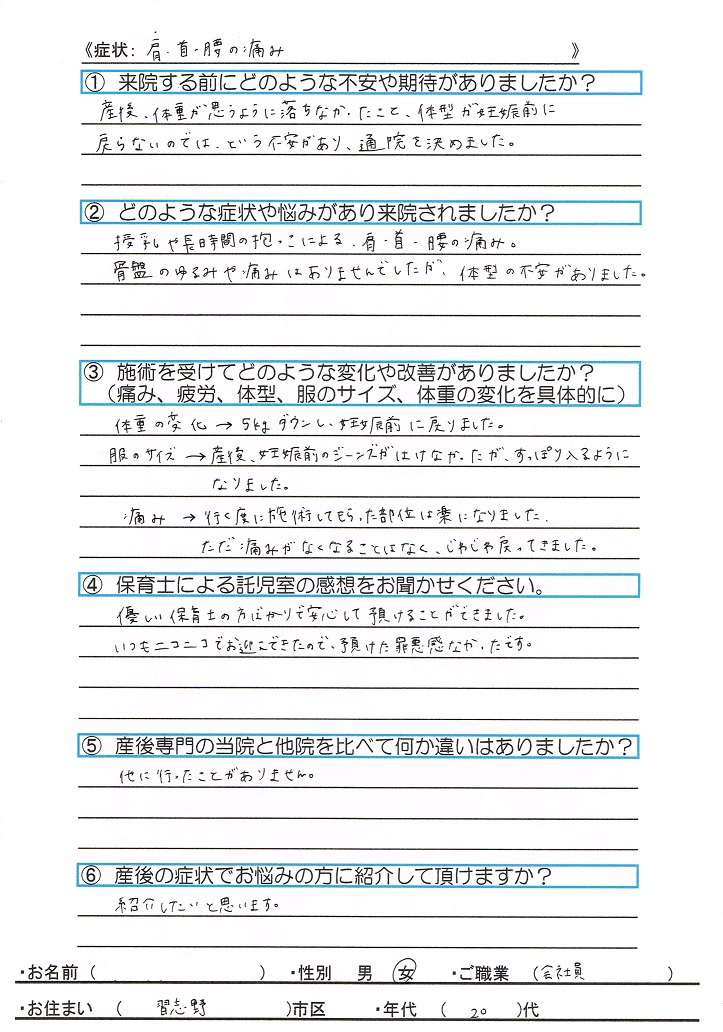 《症状: 肩・首・腰の痛み 》
① 来院する前にどのような不安や期待がありましたか？
産後、体重が思うように落ちなかったこと、体型が妊娠前に
戻らないのでは、という不安があり、通院を決めました。
② どのような症状や悩みがあり来院されましたか？
授乳や長時間の抱っこによる、肩・首・腰の痛み。
骨盤のゆるみや痛みはありませんでしたが、体型の不安がありました。
③ 施術を受けてどのような変化や改善がありましたか？
（痛み、疲労、体型、服のサイズ、体重の変化を具体的に）
体重の変化 → 5kgダウンし、妊娠前に戻りました。
服のサイズ → 産後、妊娠前のジーンズがはけなかったが、すっぽり入るように
なりました。
痛み → 行く度に施術してもらった部位は楽になりました。
ただ痛みがなくなることはなく、じわじわ戻ってきました。
④ 保育士による託児室の感想をお聞かせください。
優しい保育士の方ばかりで安心して預けることができました。
いつもニコニコでお迎えできたので、預けた罪悪感なかったです。
⑤ 産後専門の当院と他院を比べて何か違いはありましたか？
他に行ったことがありません。
⑥ 産後の症状でお悩みの方に紹介して頂けますか？
紹介したいと思います。
・お名前（ ） ・性別 男 女 ・ご職業（会社員 ）
・お住まい （ 習志野 ）市区 ・年代（ 20 ）代